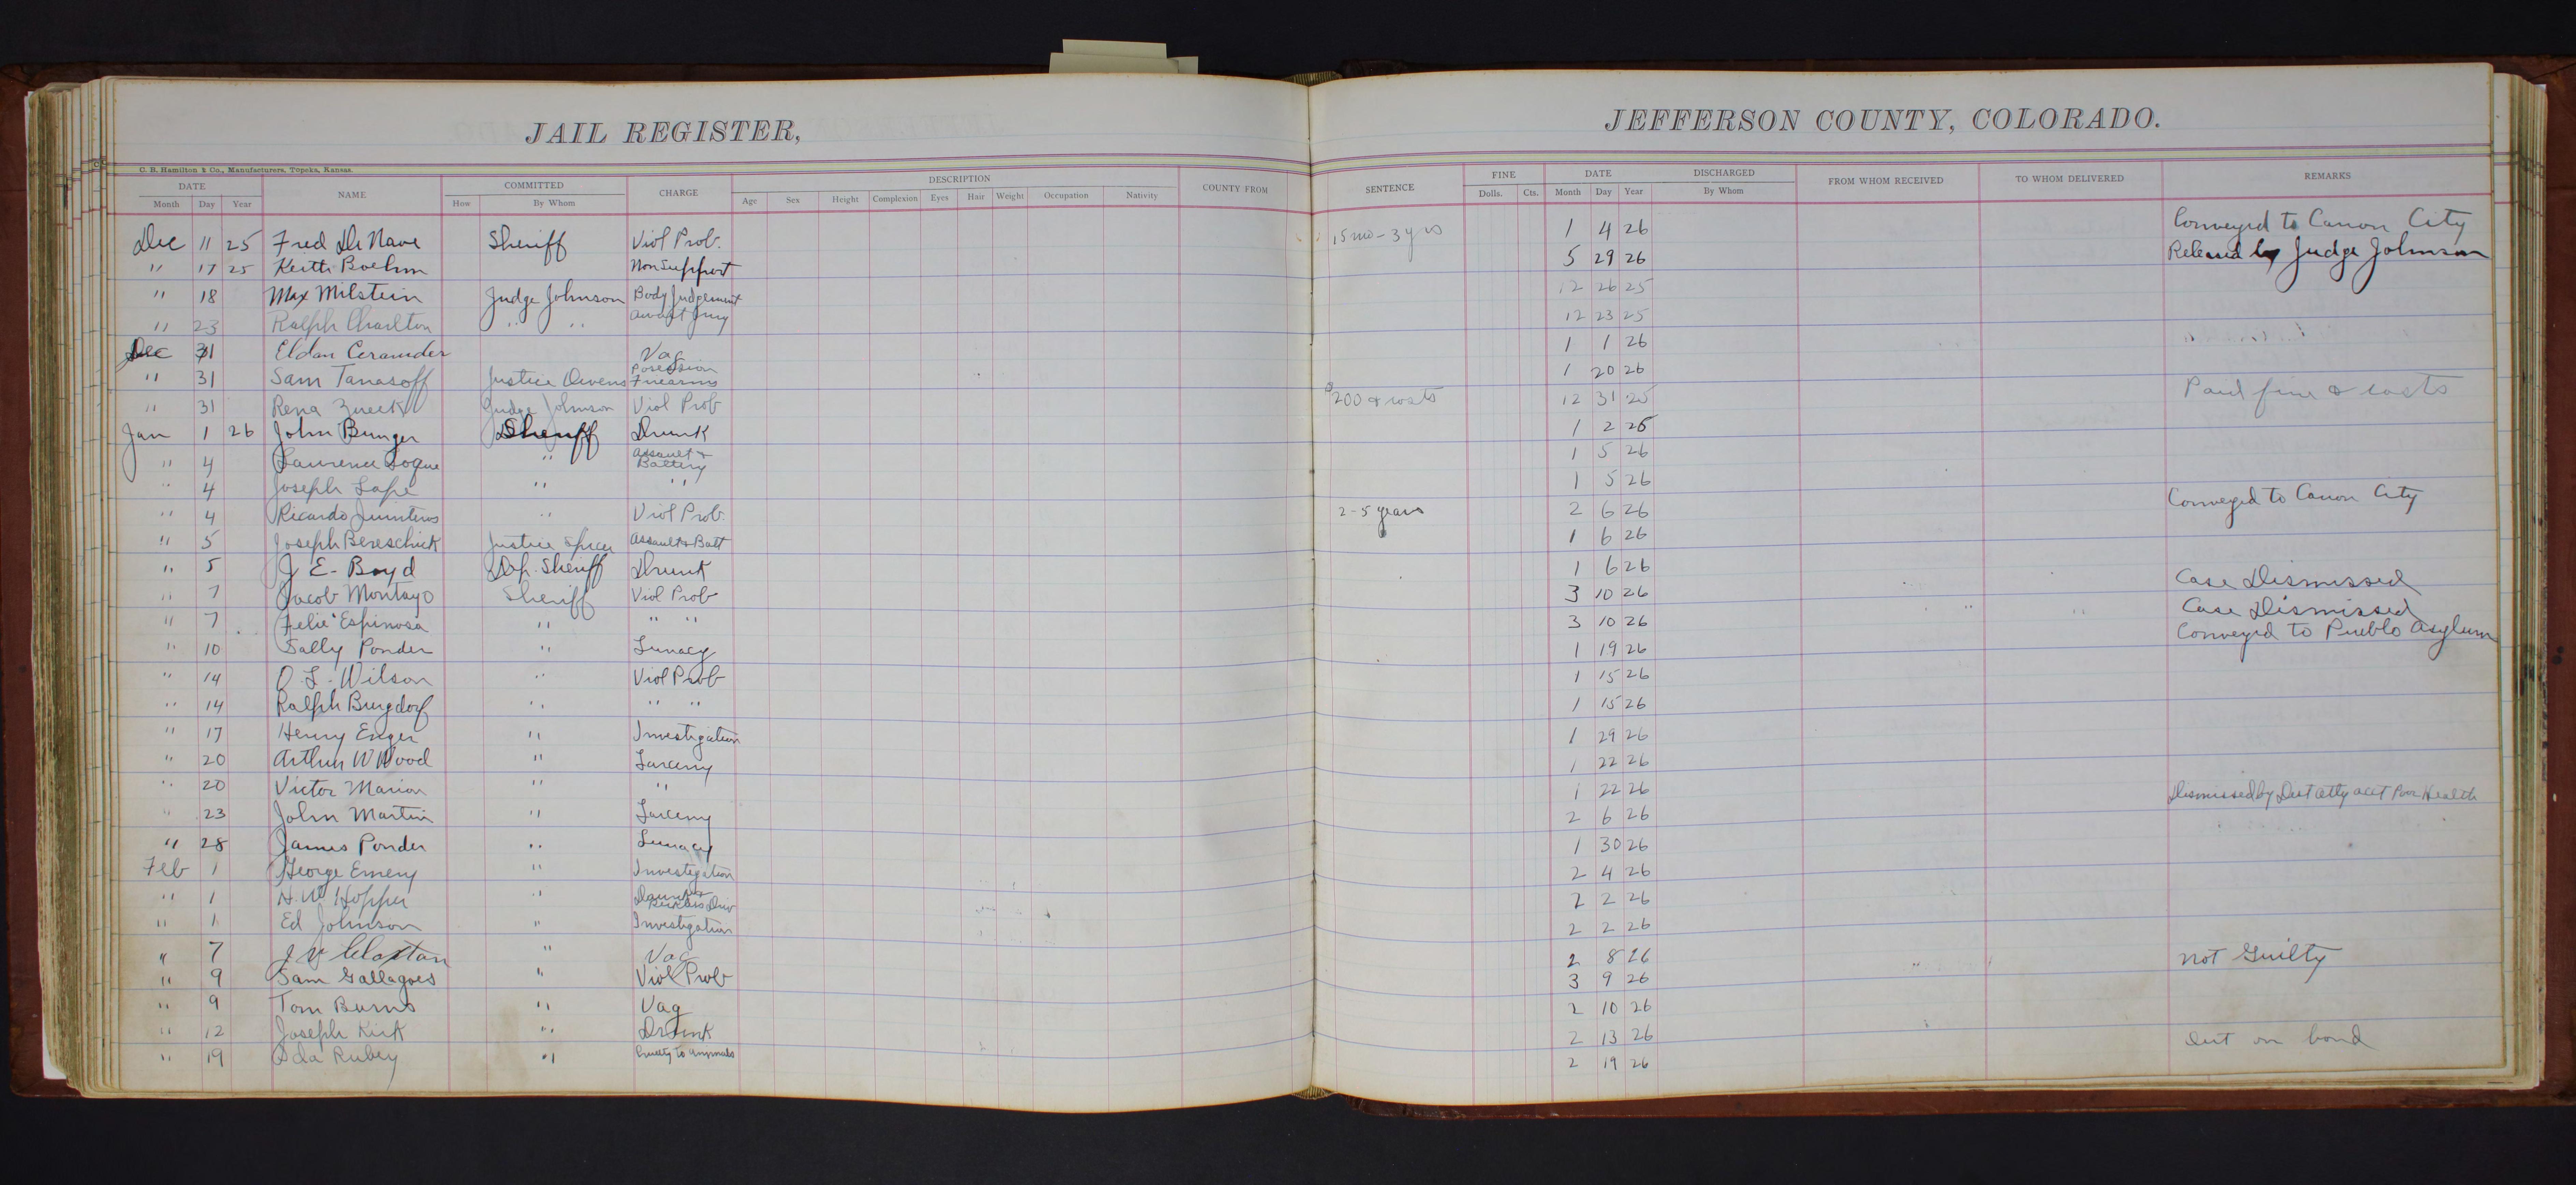 JAIL REGISTER,
JEFFERSON COUNTY, COLORADO.
C. B. Hamilton & Co., Manufacturers, Topeka, Kansas.
DATE NAME COMMITTED CHARGE DESCRIPTION COUNTY FROM SENTENCE FINE DATE DISCHARGED FROM WHOM RECEIVED TO WHOM DELIVERED REMARKS
Month Day Year How By Whom Age Sex Height Complexion Eyes Hair Weight Occupation Nativity Dolls. Cts. Month Day Year By Whom
Dec 11 25 Fred De Nave Sheriff Viol Prob. 15 mo - 3 yrs 1 4 26 Conveyed to Canon City
" 17 25 Keith Boehm Non Support 5 29 26 Released by Judge Johnson
" 18 Max Milstein Judge Johnson Body Judgement 12 26 25
" 23 Ralph Charlton " " Await Jury 12 23 25
Dec 31 Eldon Vag 1 1 26
" 31 Sam Tanasoff Justice Owens Posession Firearms 1 20 26
" 31 Rena Zueck Judge Johnson Viol Prob $200 & costs 12 31 25 Paid fine & costs
Jan 1 26 John Bunger Sheriff Drunk 1 2 26
" 4 Laurence Logue " Assault & Battery 1 5 26
" 4 Joseph Lape " " 1 5 26
" 4 Ricardo " Viol Prob. 2-5 years 2 6 26 Conveyed to Canon City
" 5 Joseph Bereschick Justice Spicer Assault & Batt 1 6 26
" 5 J E. Boyd Dep. Sheriff Drunk 1 6 26
" 7 Jacob Montayo Sheriff Viol Prob 3 10 26 Case Dismissed
" 7 Felie Espinosa " " " 3 10 26 Case Dismissed
" 10 Sally Ponder " Lunacy 1 19 26 Conveyed to Pueblo Asylum
" 14 O. L. Wilson " Viol Prob 1 15 26
" 14 Ralph Burgdorf " " " 1 15 26
" 17 Henry Enger " Investigation 1 29 26
" 20 Arthur W Wood " Larceny 1 22 26
" 20 Victor Marion " " 1 22 26
" 23 John Martin " Larceny 2 6 26 Dismissed by Dist Atty acct Poor Health
" 28 James Ponder " Lunacy 1 30 26
Feb 1 George Emery " Investigation 2 4 26
" 1 H. W Hopper " Drunk & Driv 2 2 26
" 1 Ed Johnson " Investigation 2 2 26
" 7 J V " Vag 2 8 26 Not Guilty
" 9 Sam Gallagoes " Viol Prob 3 9 26
" 9 Tom Burns " Vag 2 10 26
" 12 Joseph Kirk " Drunk 2 13 26
" 19 Ada Rubey " Cruelty to Anymals 2 19 26 Out on bond